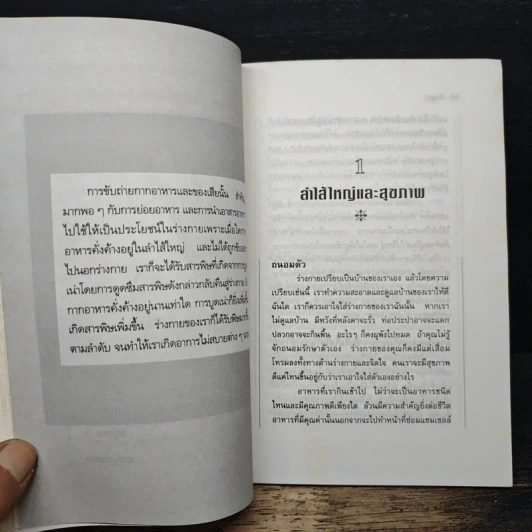 การขับถ่ายกากอาหารและของเสียนั้น สำคัญ
มากพอ ๆ กับการย่อยอาหาร และการนำเอาสารอาหาร
ไปใช้ให้เป็นประโยชน์ในร่างกายเพราะเมื่อใดกาก
อาหารคั่งค้างอยู่ในลำไส้ใหญ่ และไม่ได้ถูกขับออก
ไปนอกร่างกาย เราก็จะได้รับสารพิษที่เกิดจากการบูด
เน่าโดยการดูดซึมสารพิษดังกล่าวกลับคืนสู่ร่างกาย
กากอาหารค้างอยู่นานเท่าใด การบูดเน่าก็ยิ่ง
เกิดสารพิษเพิ่มขึ้น ร่างกายของเราก็ได้รับพิษมากขึ้น
ตามลำดับ จนทำให้เราเกิดอาการไม่สบายต่าง ๆ
1
ลำไส้ใหญ่และสุขภาพ
ถนอมตัว
ร่างกายเปรียบเป็นบ้านของเราเอง แล้วโดยความ
เปรียบเช่นนี้ เราทำความสะอาดและดูแลบ้านของเราให้ดี
ฉันใด เราก็ควรเอาใจใส่ร่างกายของเราฉันนั้น หากเรา
ไม่ดูแลบ้าน มิหวังที่หลังคาจะรั่ว ท่อประปาอาจจะแตก
ปลวกอาจจะกินพื้น อะไรๆ ก็คงผุพังไปหมด ถ้าคุณไม่รู้
จักถนอมรักษาตัวเอง ร่างกายของคุณก็คงมีแต่เสื่อม
โทรมลงทั้งทางด้านร่างกายและจิตใจ คนเราจะมีสุขภาพ
ดีแค่ไหนขึ้นอยู่กับว่าเราเอาใจใส่ตัวเองอย่างไร
อาหารที่เรากินเข้าไป ไม่ว่าจะเป็นอาหารชนิด
ไหนและมีคุณภาพดีเพียงใด ล้วนมีความสำคัญยิ่งต่อชีวิต
อาหารที่มีคุณค่านั้นนอกจากจะไปทำหน้าที่ซ่อมแซมเซลล์